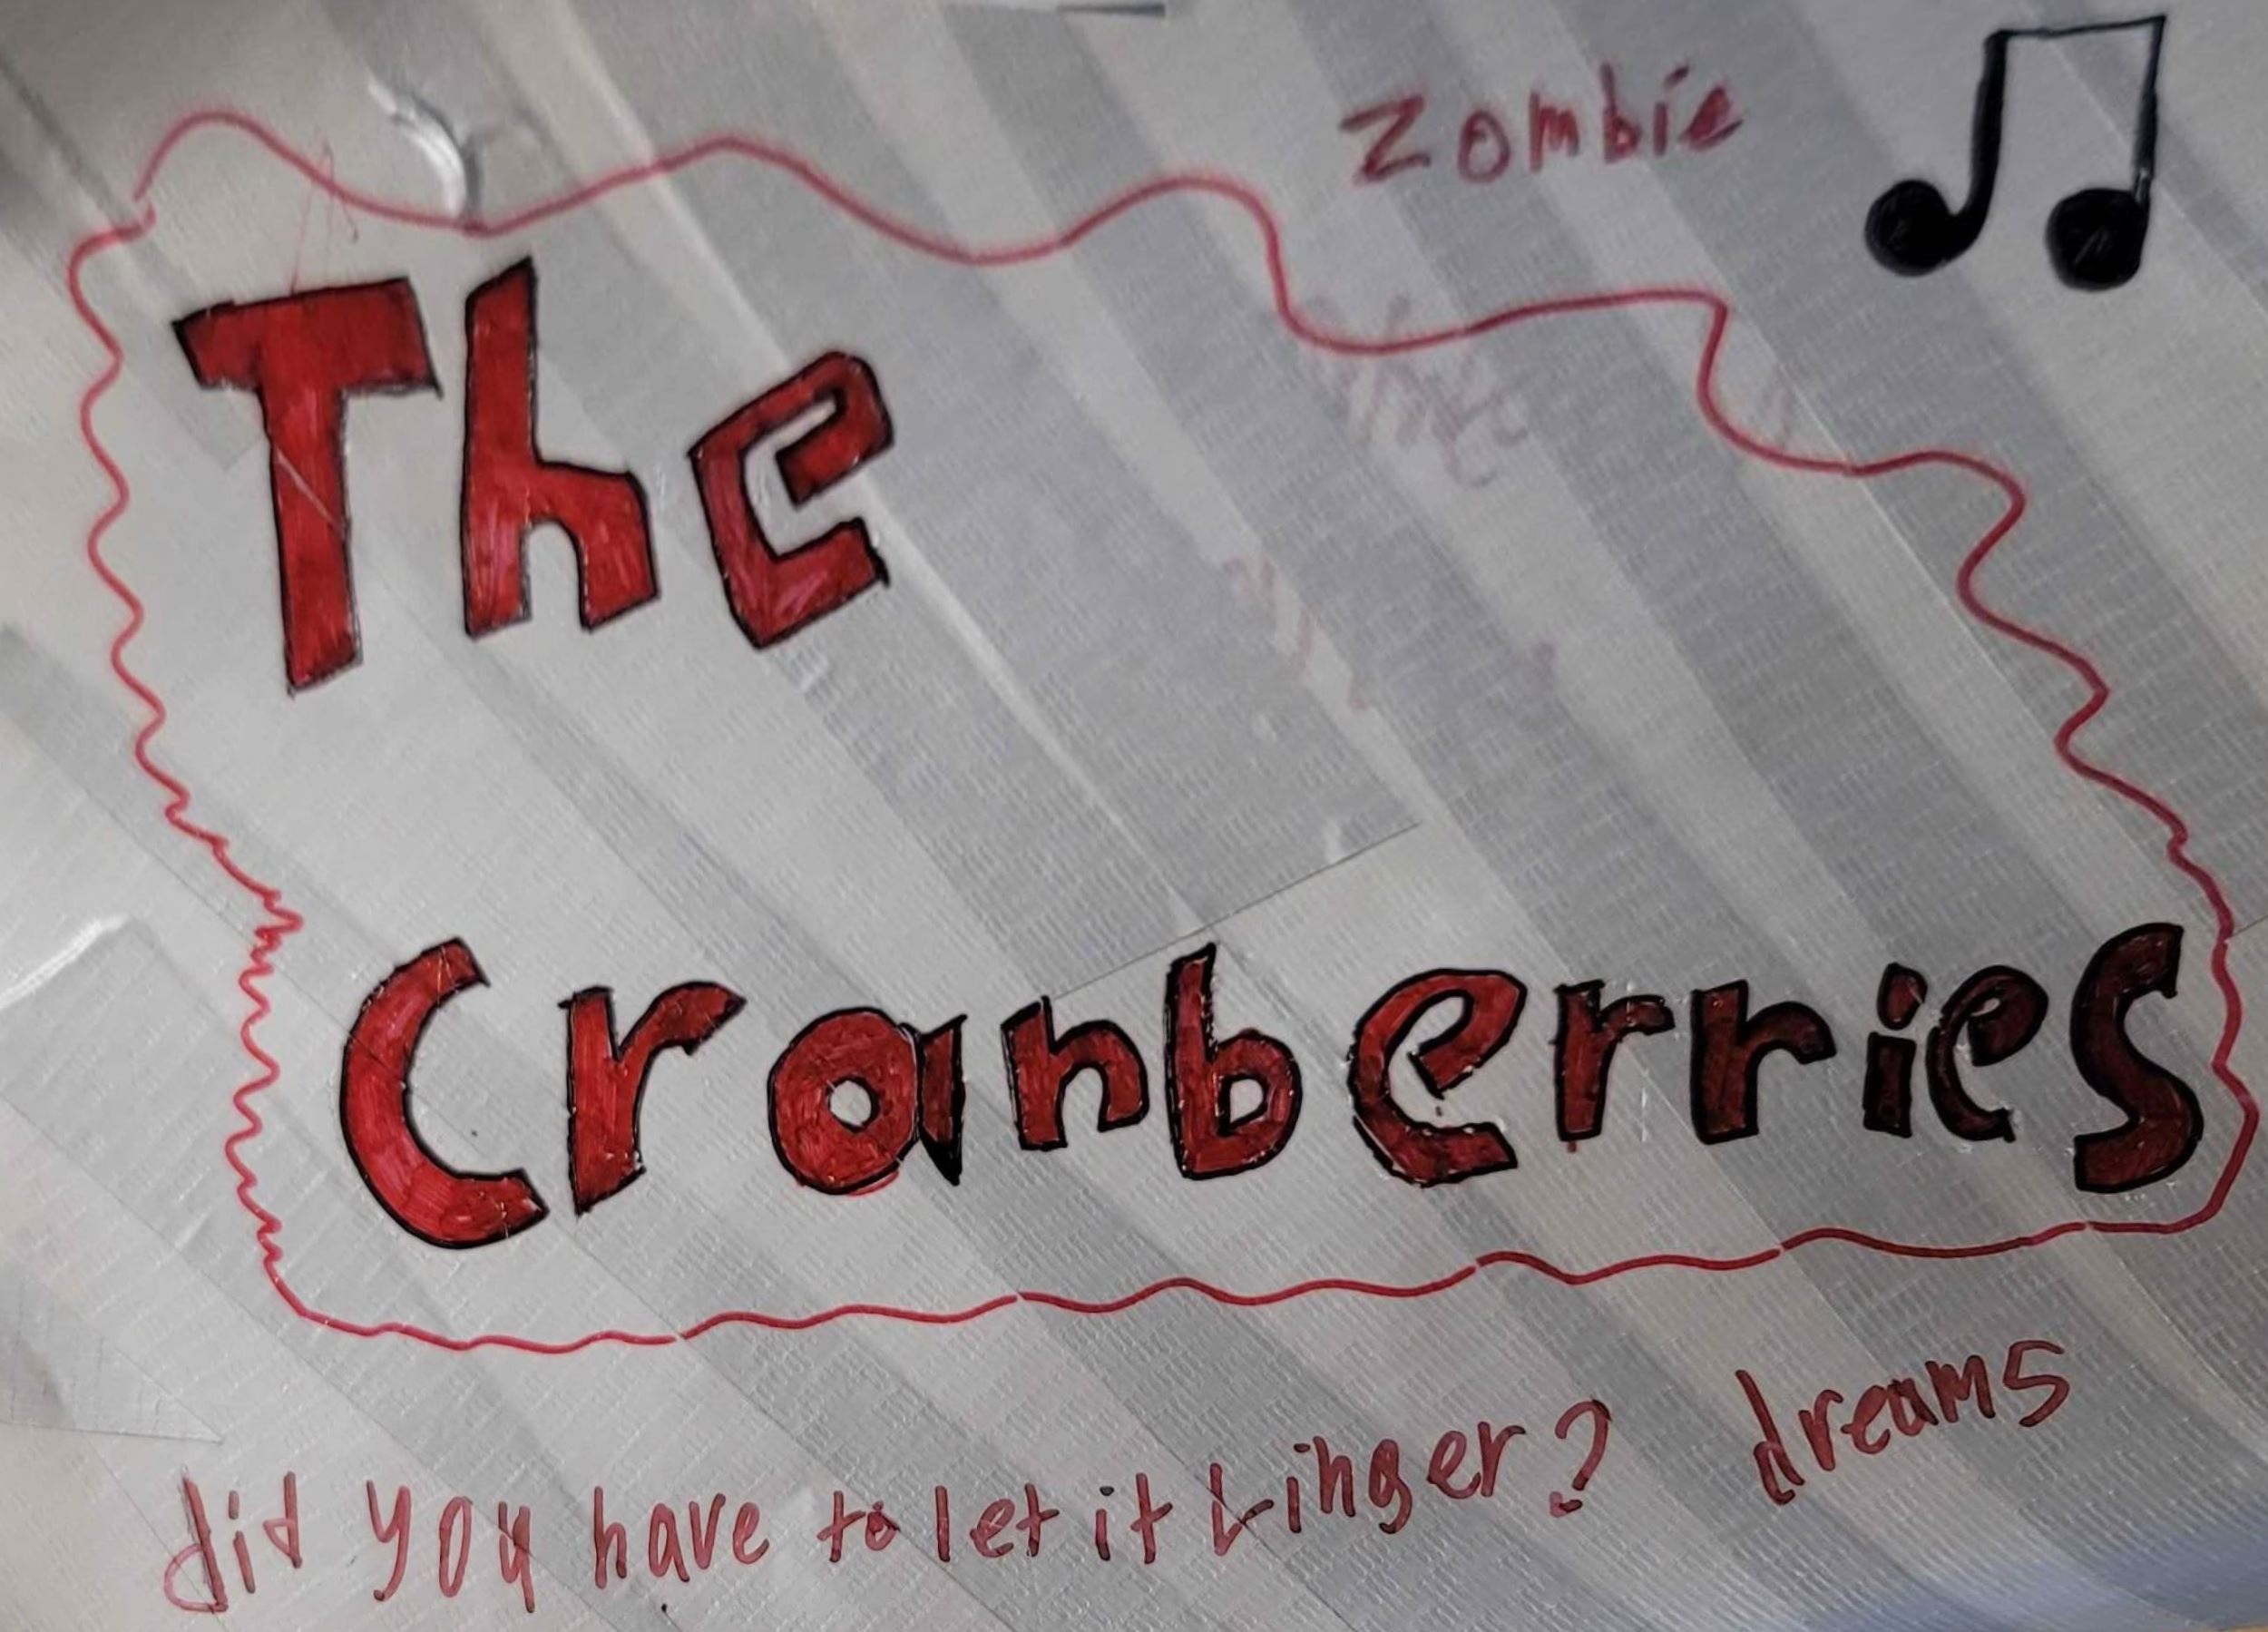 Zombie
The
Cranberries
did you have to let it Linger? dreams